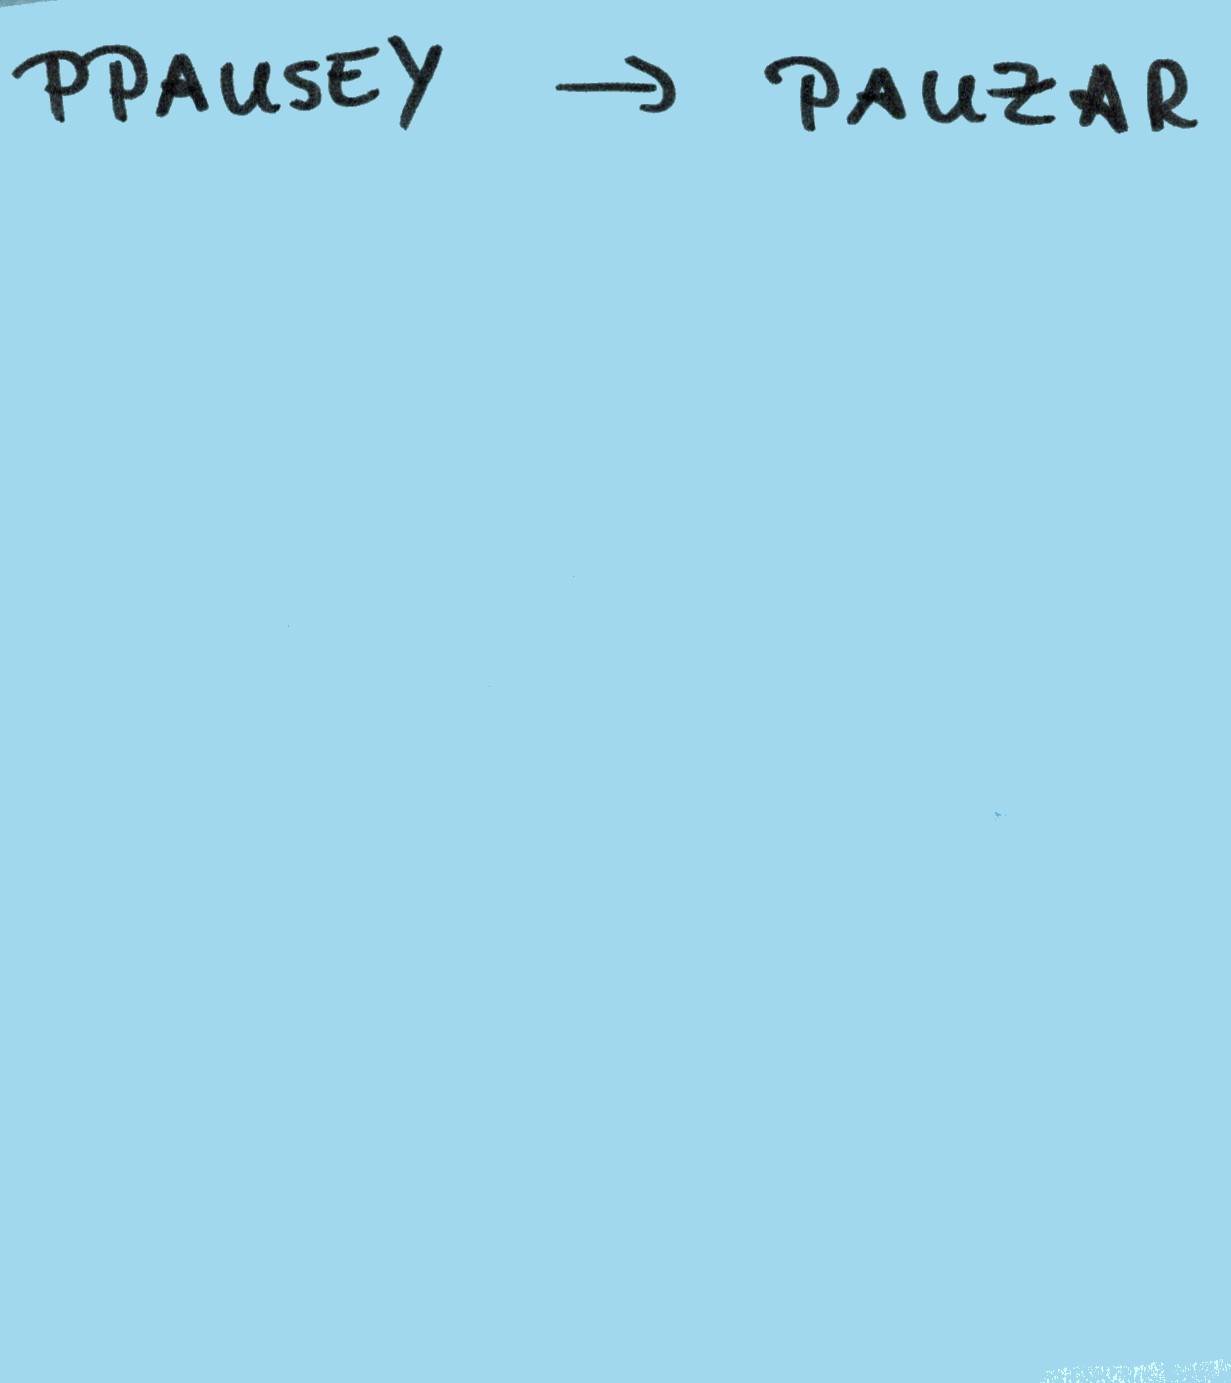 PPAUSEY → PAUZAR